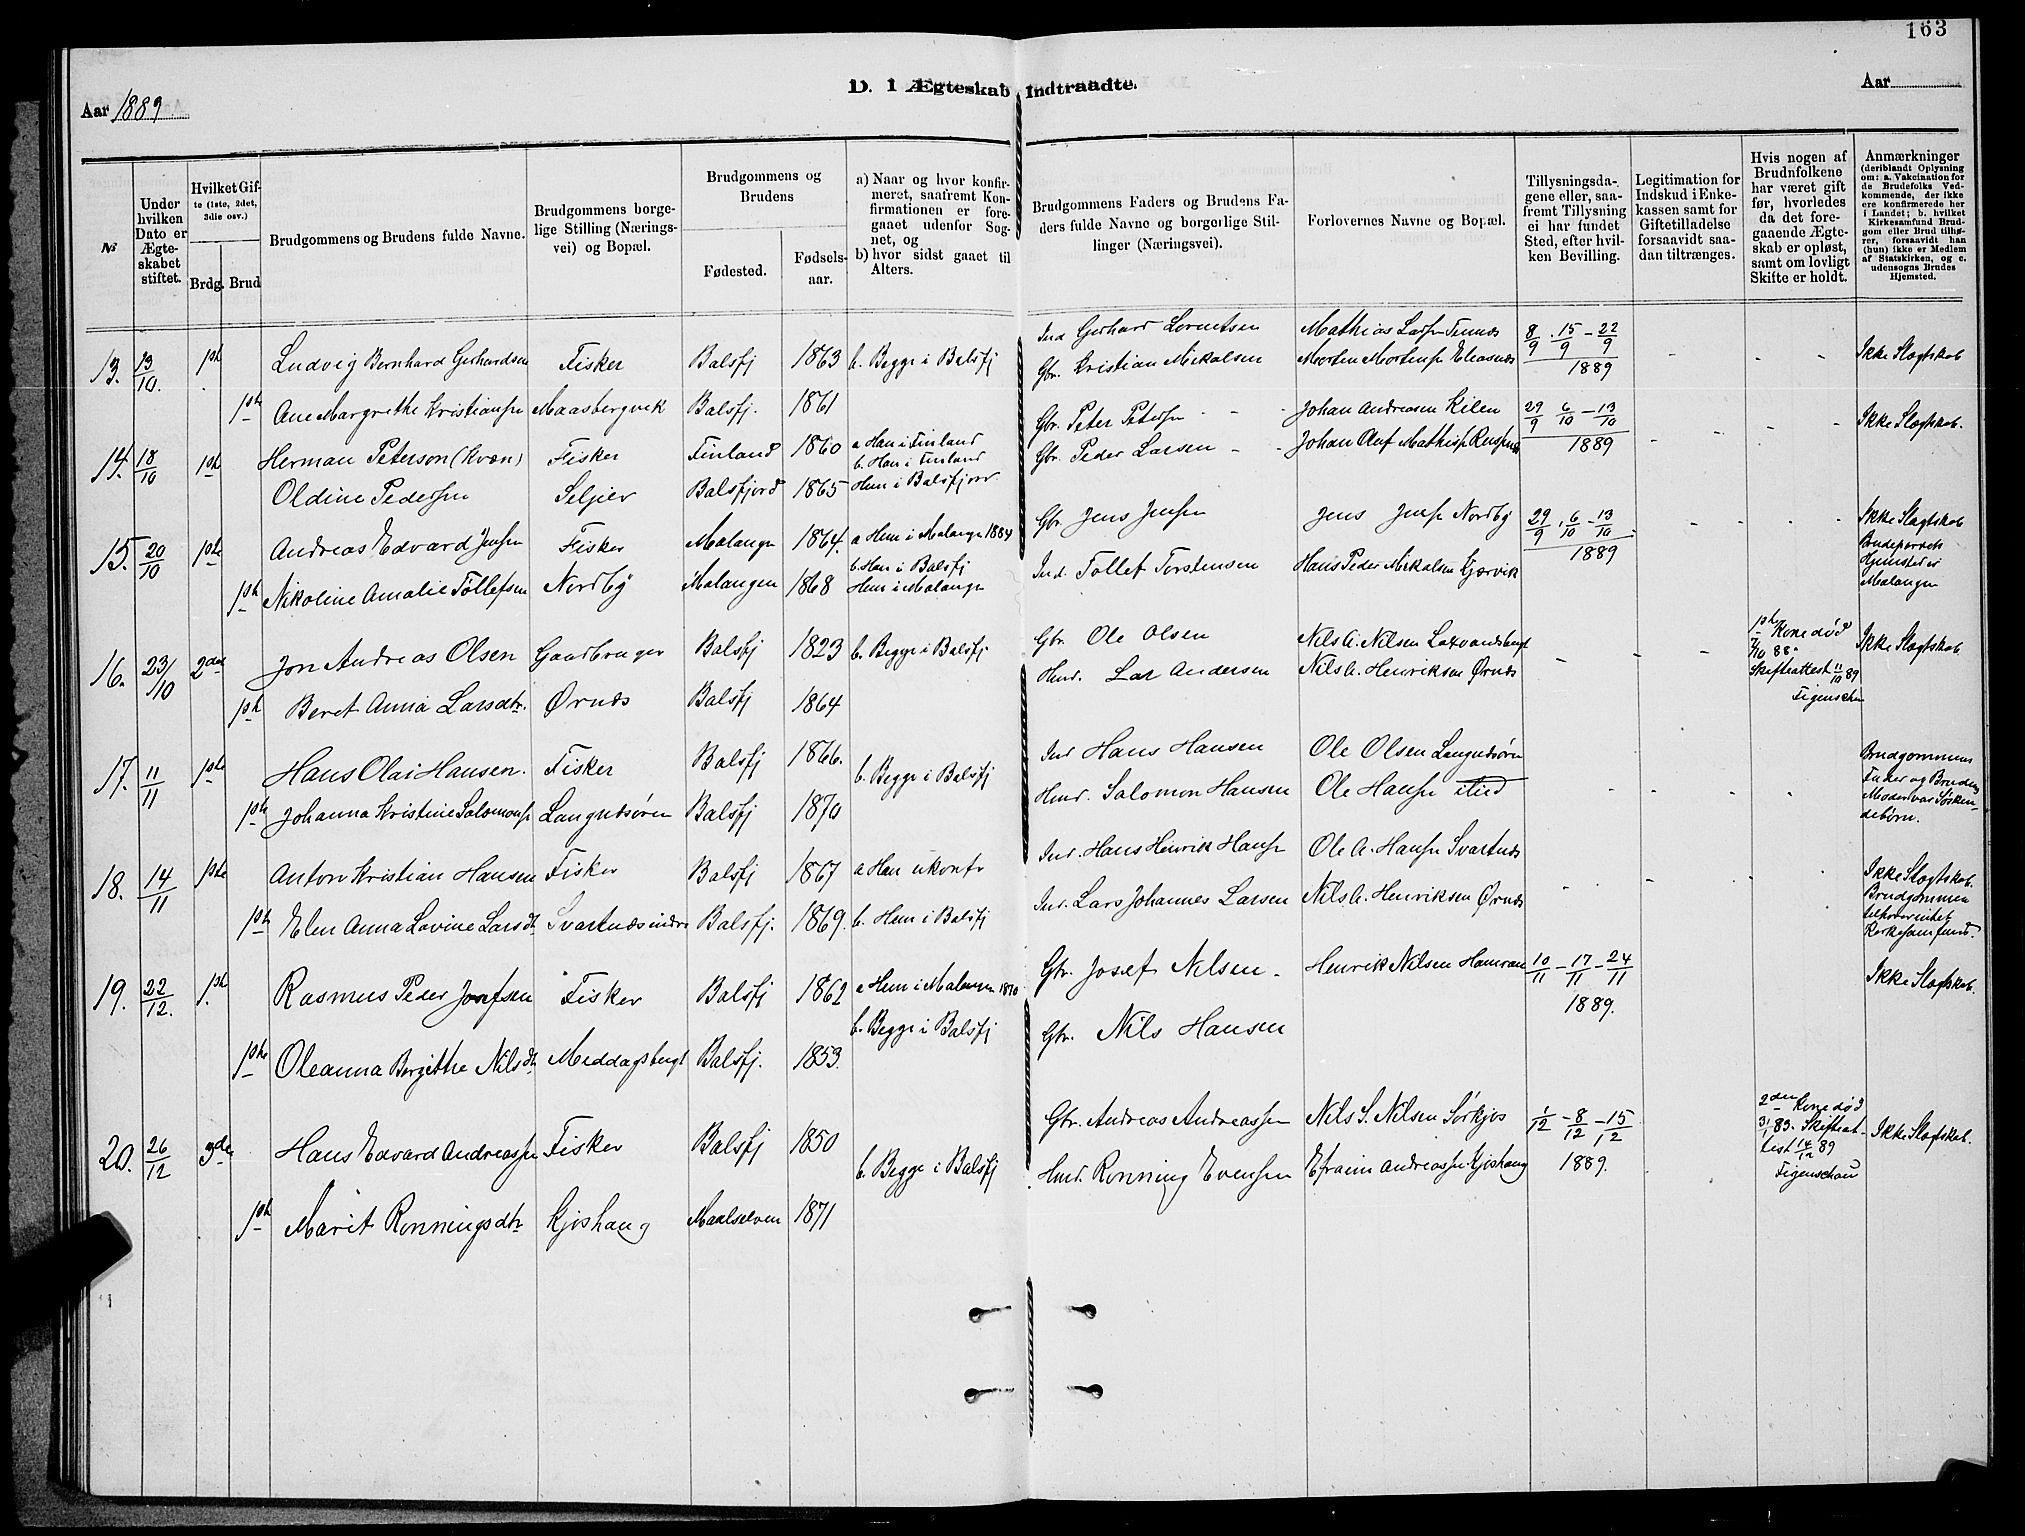 163
D. I Ægteskab Indtraadte.
Aar 1889
Aar
№
Under hvilken Dato er Ægteskabet stiftet.
Hvilket Gifte (1ste, 2det, 3die osv.)
Brdg. Brud
Brudgommens og Brudens fulde Navne.
Brudgommens borgelige Stilling (Næringsvei) og Bopæl.
Brudgommens og Brudens
Fødested.
Fødselsaar.
a) Naar og hvor konfirmeret, saafremt Konfirmationen er foregaaet udenfor Sognet, og
b) hvor sidst gaaet til Alters.
Brudgommens Faders og Brudens Faders fulde Navne og borgerlige Stillinger (Næringsvei).
Forlovernes Navne og Bopæl.
Tillysningsdagene eller, saafremt Tillysning ei har fundet Sted, efter hvilken Bevilling.
Legitimation for Indskud i Enkekassen samt for Giftetilladelse forsaavidt saadan tiltrænges.
Hvis nogen af Brudnfolkene har været gift før, hvorledes da det foregaaende Ægteskab er opløst, samt om lovligt Skifte er holdt.
Anmærkninger (deriblandt Oplysning om: a. Vakcination for de Brudefolks Vedkommende, der ikke ere konfirmerede her i Landet; b. hvilket Kirkesamfund Brudgom eller Brud tilhører, forsaavidt han (hun) ikke er Medlem af Statskirken, og c. udensogns Brudes Hjemsted.
13. 13/10. 1ste Ludvig Bernhard Gerhardsen Fisker Balsfj 1863 b. Begge i Balsfj Ind Gerhard Lorentsen Mathias Larsen Tennæs 8/9. 15/9 - 22/9 1889 Ikke Slægtskab
1ste Ane Margrethe Kristiansen Maasbergvik Balsfj. 1861 Gbr. Kristian Mikalsen Morten Mortensen
14. 18/10 1ste Herman Peterson (Kvæn) Fisker Finland 1860 a Han i Finland b. Han i Finland Gbr. Peter Petersen Johan Andreasen Kilen 29/9 6/10 - 13/10 1889 Ikke Slægtskab.
Oldine Pedersen Seljelv Balsfjord 1865 Hun i Balsfjord Gbr. Peder Larsen Johan Oluf Mathisen
15. 20/10 1ste Andreas Edvard Jensen Fisker Malangen 1864. a Hun i Malangen 1884 b. Han i Balsfj Gbr. Jens Jensen Jens Jensen Nordby 29/9. 6/10 - 13/10 1889 Ikke Slægtskab Brudeparrets Hjemsted er Malangen
1ste Nikoline Amalie Tollefsen Nordby Malangen 1868 Hun i Malangen Ind. Tollef Torstensen Hans Peder Mikalsen Kjærvik
16. 23/10 2det Jon Andreas Olsen Gaardbruger Balsfj 1823 b. Begge i Balsfj Gbr. Ole Olsen Nils A. Nilsen 1ste Kone død 7/10 88. Skifteattest 11/10 89 Figenschau Ikke Slægtskab
1ste Beret Anna Larsdtr. Ørnæs Balsfj 1864 Hmd. Lars Andersen Nils A. Henriksen Ørnæs
17. 11/11 1ste Hans Olai Hansen. Fisker Balsfj 1866. b. Begge i Balsfj Ind Hans Hansen Ole Olsen Langnæsøren Brudgommens Fader og Brudens Moder var Søskendebørn.
1ste Johanna Kristine Salomonsen Langnæsøren Balsfj 1870 Hmd. Salomon Hansen Ole Hansen
18. 14/11 1ste Anton Kristian Hansen Fisker Balsfj 1867 a Han ukonfr Ind. Hans Henrik Hansen Ole A. Hansen Svartnæs Ikke Slægtskab. Brudgommen Kirkesamfund.
1ste Elen Anna Lovine Larsdt. Svartnæs indre Balsfj. 1869. b. Hun i Balsfj Ind. Lars Johannes Larsen Nils A. Henriksen Ørnæs
19. 22/12. 1ste Rasmus Peder Josefsen Fisker Balsfj 1862 a Hun i Malangen 1870 b. Begge i Balsfj Gbr. Josef Nilsen Henrik Nilsen 10/11 - 17/11 - 24/11 1889. Ikke Slægtskab.
1ste Oleanna Bergithe Nilsdt. Middagsbergt Balsfj. 1853. Gbr. Nils Hansen
20. 26/12 3die Hans Edvard Andreassen Fisker Balsfj 1850 b. Begge i Balsfj Gbr. Andreas Andreassen Nils S. Nilsen Sørkjos 1/12 - 8/12 - 15/12 1889. 2den Kone død 3/1 83. Skifteattest 14/12 89 Figenschau Ikke Slægtskab.
1ste Marit Ronningsdtr Kjoshaug Maalselven 1871 Hmd. Ronning Evensen Efraim Andreassen Kjoshaug